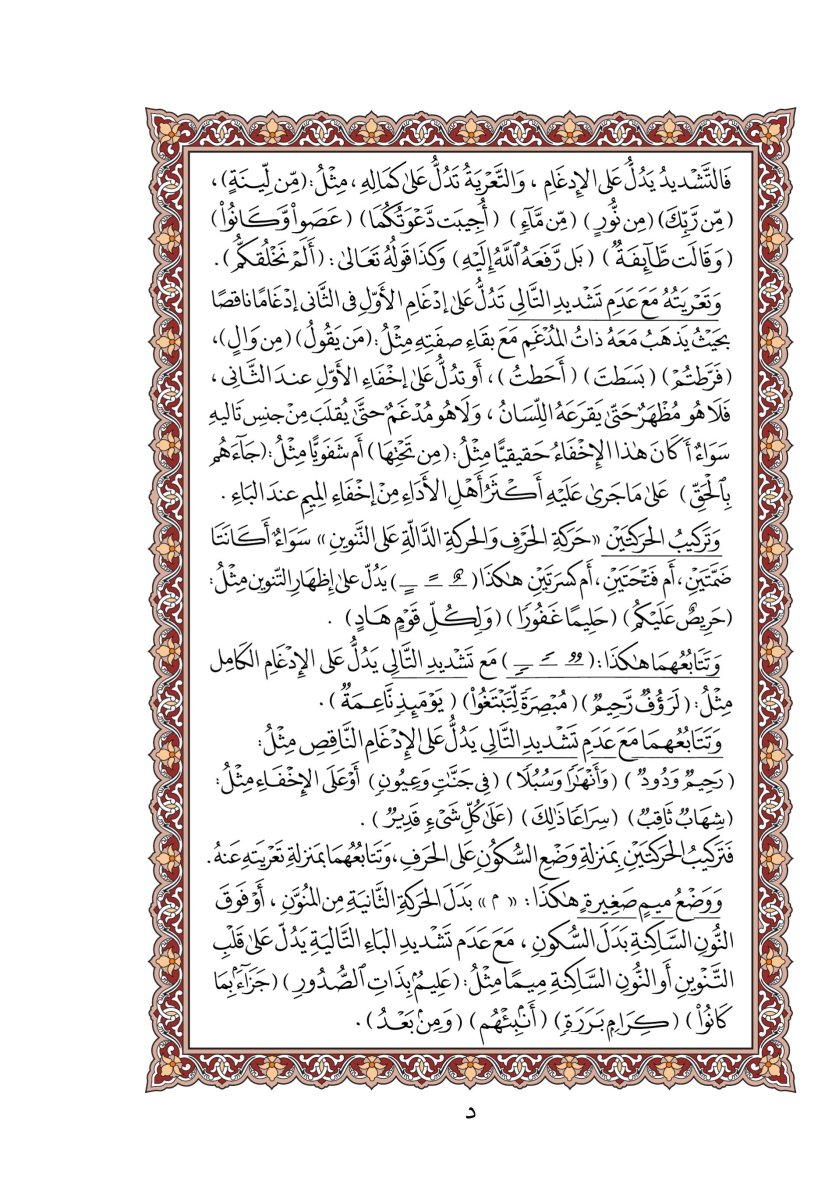 فَالتَّشْدِيدُ يَدُلُّ عَلَى الإِدْغَامِ ، وَالتَّعْرِيَةُ تَدُلُّ عَلَىٰ كَمَالِهِ ، مِثْلُ: (مِّن لِّينَةٍ) ،
(مِّن رَّبِّكَ) (مِن نُّورٍ) (مِّن مَّآءٍ) (أُجِيبَت دَّعْوَتُكُمَا) (عَصَواْ وَّكَانُواْ)
(وَقَالَت طَّآئِفَةٌ) (بَل رَّفَعَهُ ٱللَّهُ إِلَيْهِ) وَكَذَا قَوْلُهُ تَعَالَىٰ: (أَلَمْ نَخْلُقكُّم) .
وَتَعْرِيَتُهُ مَعَ عَدَمِ تَشْدِيدِ التَّالِى تَدُلُّ عَلَىٰ إِدْغَامِ الأَوَّلِ فِى الثَّانِى إِدْغَامًا نَاقِصًا
بِحَيْثُ يَذْهَبُ مَعَهُ ذَاتُ المُدْغَمِ مَعَ بَقَاءِ صِفَتِهِ مِثْلُ: (مَن يَقُولُ) (مِن وَالٍ) ،
(فَرَّطتُمْ) (بَسَطتَ) (أَحَطتُ) ، أَو تَدُلُّ عَلَىٰ إِخْفَاءِ الأَوَّلِ عِندَ الثَّانِى ،
فَلَا هُوَ مُظْهَرٌ حَتَّىٰ يَقْرَعَهُ اللِّسَانُ ، وَلَا هُوَ مُدْغَمٌ حَتَّىٰ يُقْلَبَ مِنْ جِنسِ تَالِيهِ
سَوَاءٌ أَكَانَ هَٰذَا الإِخْفَاءُ حَقِيقِيًّا مِثْلُ: (مِن تَحْتِهَا) أَم شَفَوِيًّا مِثْلُ: (جَآءَهُم
بِٱلْحَقِّ) عَلَىٰ مَا جَرَىٰ عَلَيْهِ أَكْثَرُ أَهْلِ الأَدَاءِ مِنْ إِخْفَاءِ المِيمِ عِندَ البَاءِ .
وَتَرْكِيبُ الحَرَكَتَيْنِ «حَرَكَةِ الحَرْفِ وَالحَرَكَةِ الدَّالَّةِ عَلَى التَّنْوِينِ» سَوَاءٌ أَكَانَتَا
ضَمَّتَيْنِ، أَم فَتْحَتَيْنِ، أَم كَسرَتَيْنِ هَٰكَذَا ( ـٌـ ـًـ ـٍـ ) يَدُلُّ عَلَىٰ إِظْهَارِ التَّنْوِينِ مِثْلُ:
(حَرِيصٌ عَلَيْكُم) (حَلِيمًا غَفُورًا) (وَلِكُلِّ قَوْمٍ هَادٍ) .
وَتَتَابُعُهُمَا هَٰكَذَا: ( ـࣱـ ـࣰـ ـࣲـ ) مَع تَشْدِيدِ التَّالِى يَدُلُّ عَلَى الإِدْغَامِ الكَامِلِ
مِثْلُ: (لَرَؤُفࣱ رَّحِيمࣱ) (مُبْصِرَةࣰ لِّتَبْتَغُواْ) (يَوْمَئِذࣲ نَّاعِمَةࣱ) .
وَتَتَابُعُهُمَا مَعَ عَدَمِ تَشْدِيدِ التَّالِى يَدُلُّ عَلَى الإِدْغَامِ النَّاقِصِ مِثْلُ:
(رَحِيمࣱ وَدُودࣱ) (وَأَنْهَٰرࣰا وَسُبُلࣰا) (فِى جَنَّٰتࣲ وَعِيُونࣲ) أَوْ عَلَى الإِخْفَاءِ مِثْلُ:
(شِهَابࣱ ثَاقِبࣱ) (سِرَاعࣰا ذَٰلِكَ) (عَلَىٰ كُلِّ شَىْءࣲ قَدِيرࣱ) .
فَتَرْكِيبُ الحَرَكَتَيْنِ بِمَنزِلَةِ وَضْعِ السُّكُونِ عَلَى الحَرفِ، وَتَتَابُعُهُمَا بِمَنزِلَةِ تَعْرِيَتِهِ عَنهُ.
وَوَضْعُ مِيمٍ صَغِيرَةٍ هَٰكَذَا: « م » بَدَلَ الحَرَكَةِ الثَّانِيَةِ مِن المُنَوَّنِ ، أَوْ فَوقَ
النُّونِ السَّاكِنَةِ بَدَلَ السُّكُونِ ، مَعَ عَدَمِ تَشْدِيدِ البَاءِ التَّالِيَةِ يَدُلُّ عَلَىٰ قَلْبِ
التَّنْوِينِ أَوِ النُّونِ السَّاكِنَةِ مِيمًا مِثْلُ: (عَلِيمُۢ بِذَاتِ ٱلصُّدُورِ) (جَزَآءَۢ بِمَا
كَانُواْ) (كِرَامِۭ بَرَرَةࣲ) (أَنۢبِئْهُم) (وَمِنۢ بَعْدُ) .
د